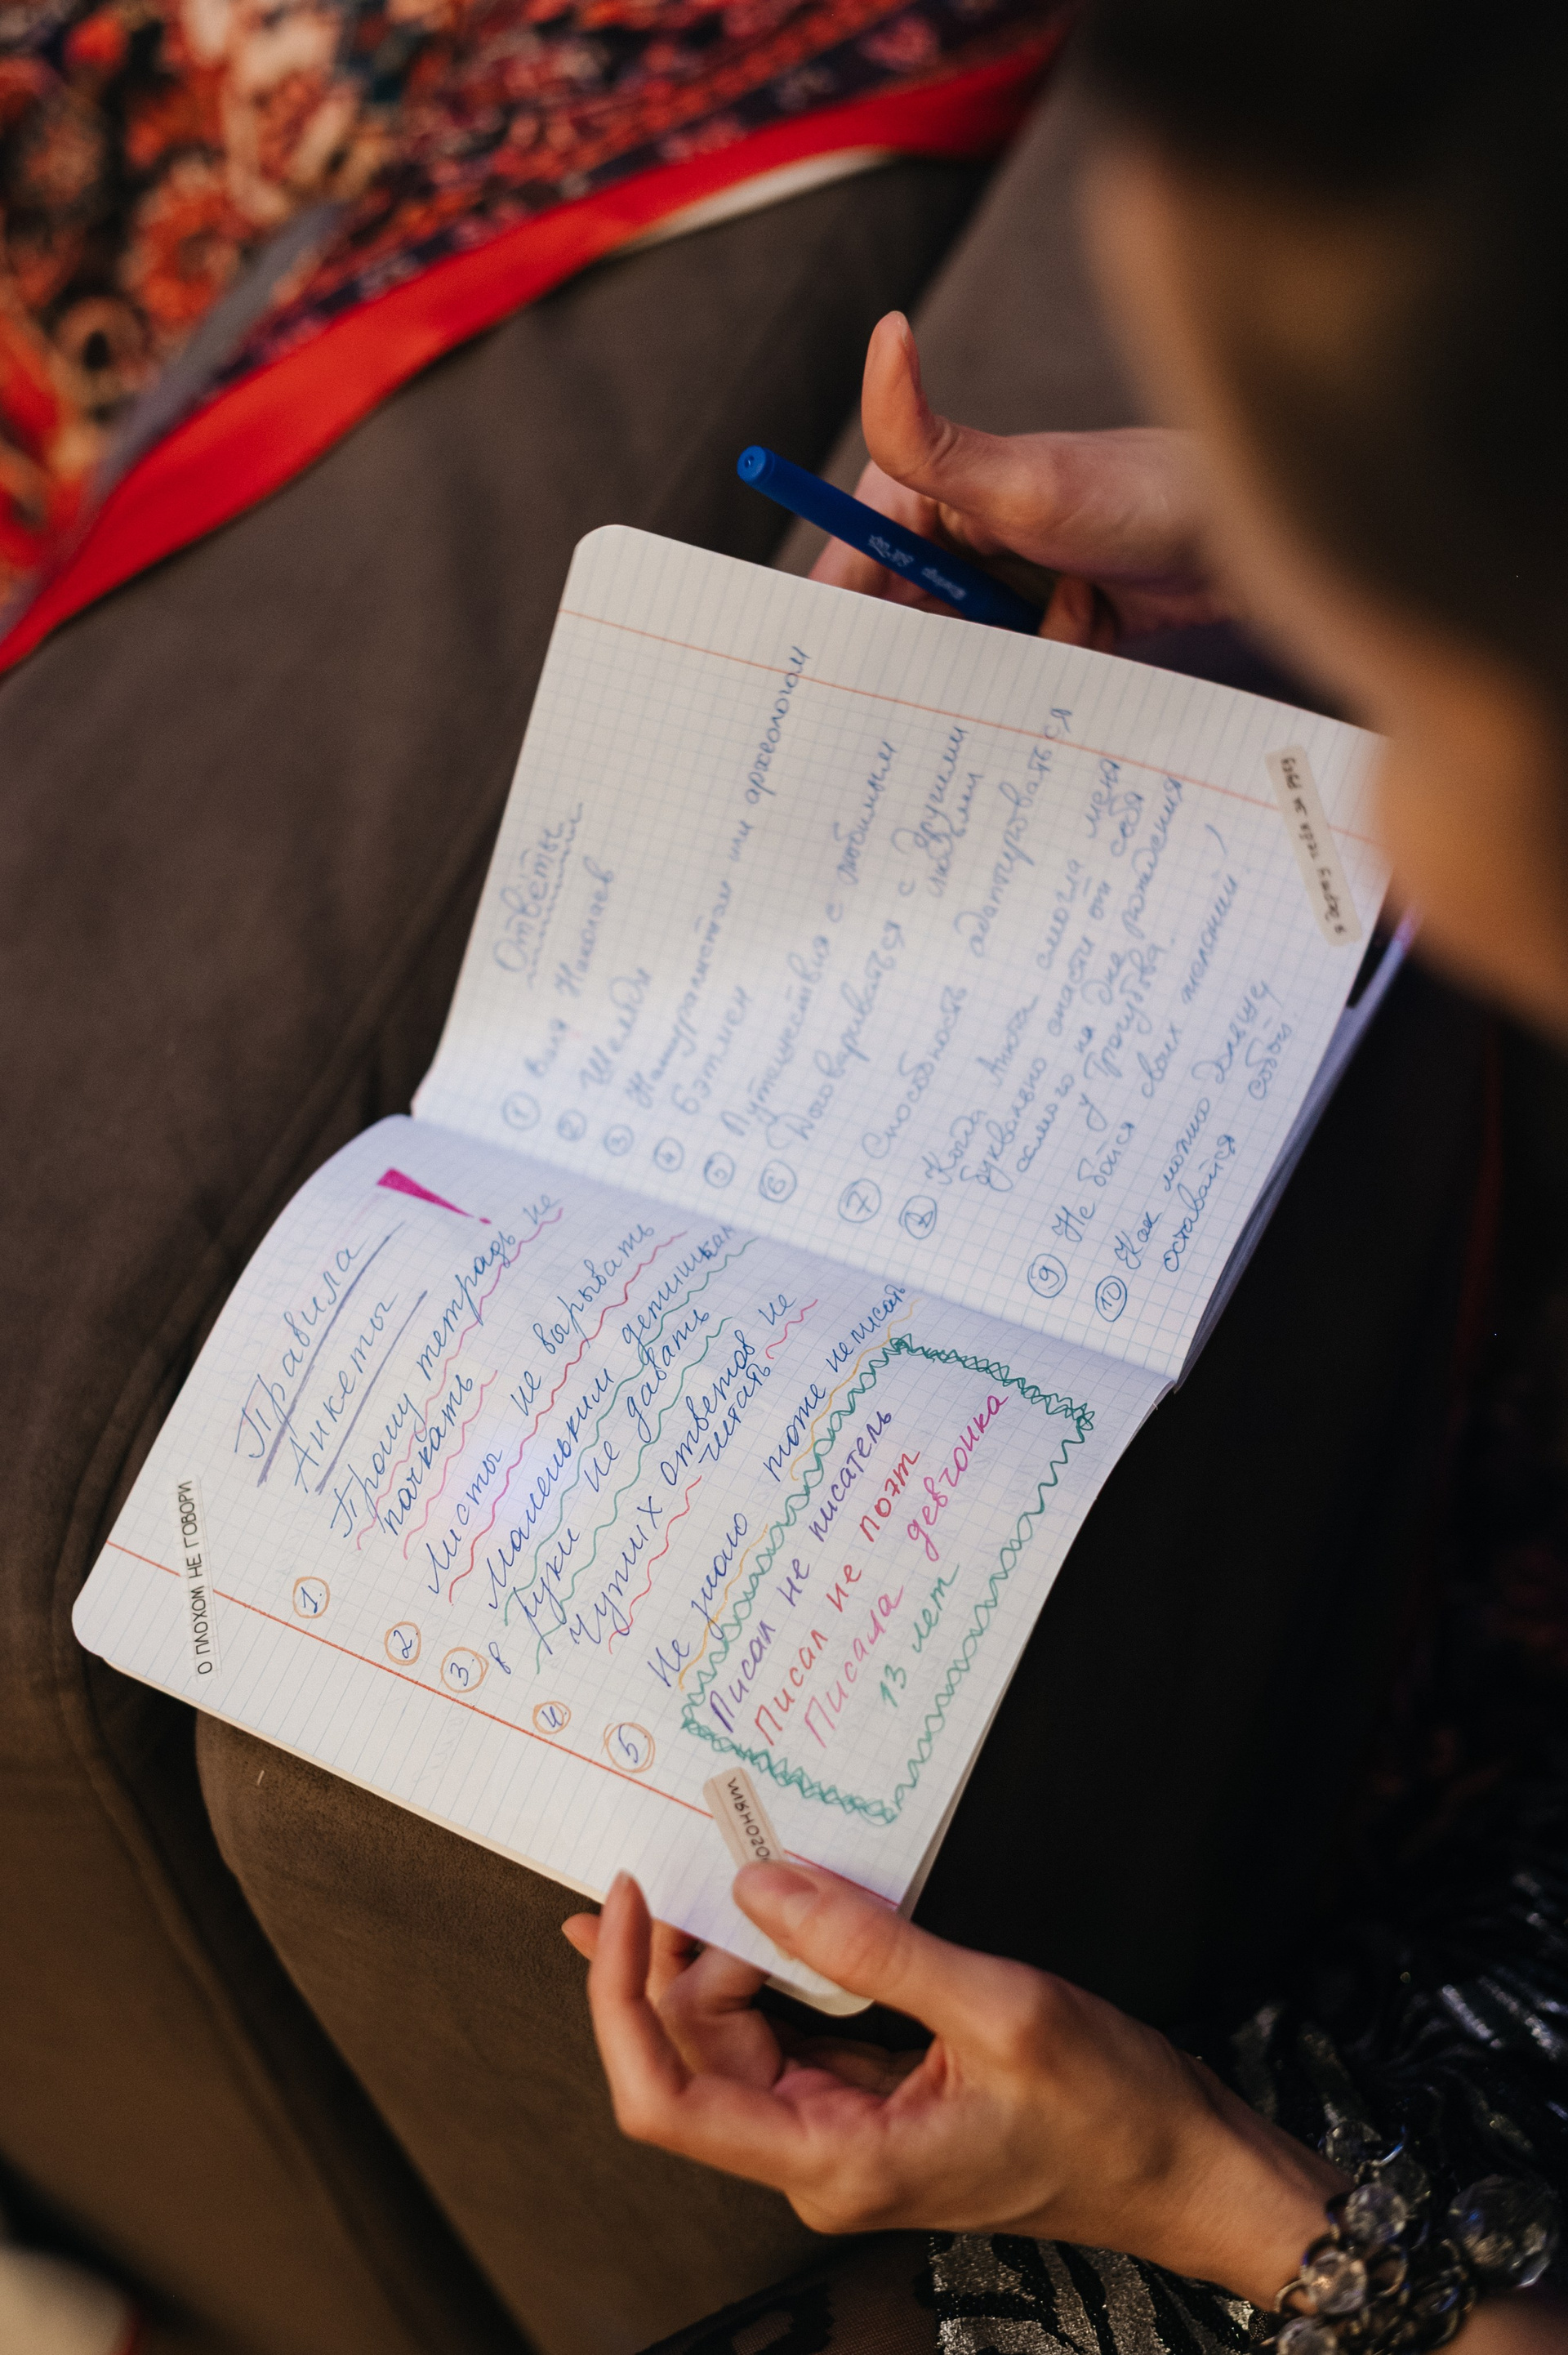 О ПЛОХОМ НЕ ГОВОРИ
Правила !
Анкеты
1. Прошу тетрадь не
пачкать
2. Листы не вырывать
3. Маленьким детишкам
в руки не давать
4. Чужих ответов не
читать
5. Не знаю тоже не писать
Писал не писатель
Писал не поэт
Писала девчонка
13 лет
ОГОНЯШ
Ответы
1 Валя Николаев
2 Шельди
3 Натуралистом или археологом
4 Бэтмен
5 Путешествия с любимым
6 Договариваться с другими
людьми
7 Способность адаптироваться
8 Когда Анюта смогла меня
буквально спасти от себя
самого на дне рождения
у Трегубова.
9 Не бойся своих желаний!
10 Как можно дольше
оставайся собой.
я держу тебя за руку